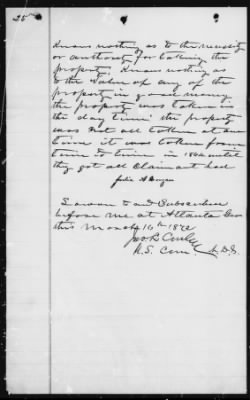 25
Knows nothing as to the necessity
or authority for taking the
property. Knows nothing as
to the value of any of the
property in good money
the property was taken in
the day time the property
was not all taken at one
time it was taken from
time to time in 1864 until
they got all Claimant had
Julia A
Sworn to and Subscribed
before me at Atlanta Geo
this March 16th 1872
U.S. Com